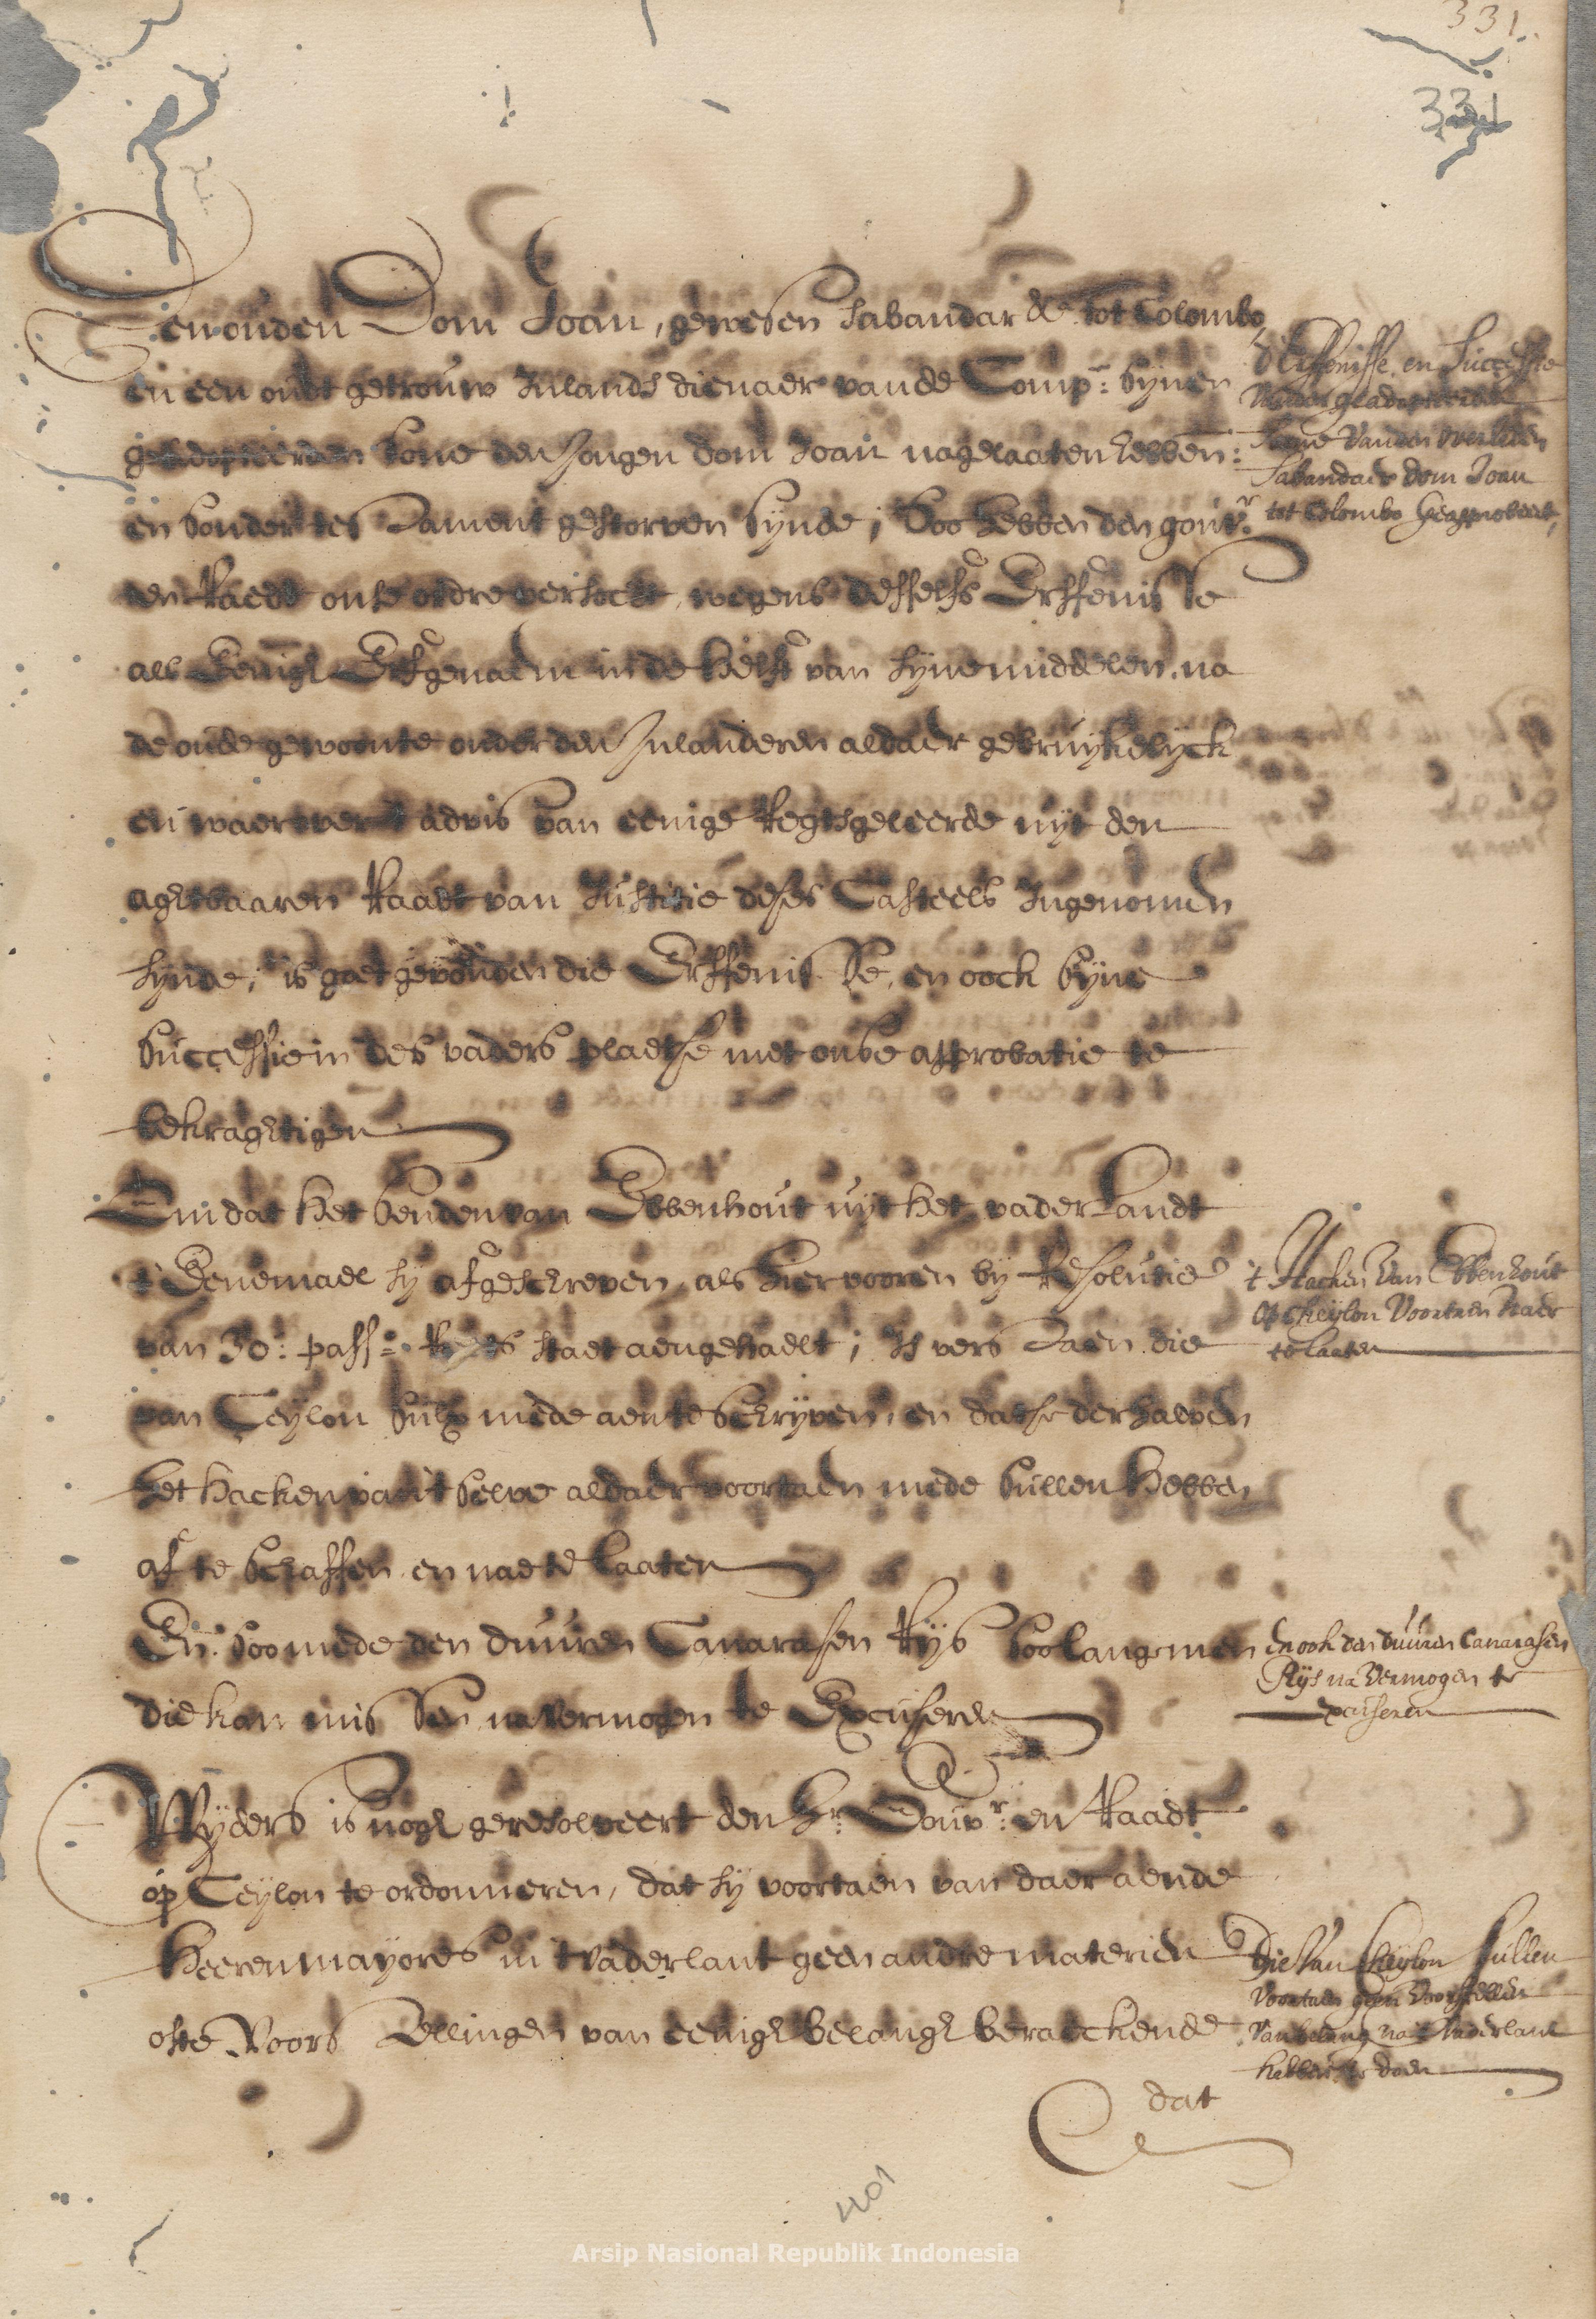 331.
331
Den ouden Dom Joan, gewesen sabandar &a. tot Colombo,
en een oudt getrouw Inlands dienaer van de Comp:, synen
geadopteerden sone den Jongen dom Joan nagelaaten hebben:
en sonder testament gestorven synde; soo hebben den gouvr.
en Raedt onse ordre versocht, wegens desselfs Erffenisse
als Eenigh Erfgenaem in de helft van syne middelen. na
de oude gewoonte onder den Inlanderen aldaer gebruykelyck
en waer over t advis van eenige Regtsgeleerde uyt den
aghtbaaren Raadt van Justitie deses Casteels Ingenomen
synde; is goet gevonden die Erffenisse, en oock syne
successie in des vaders plaetse met onse approbatie te
bekraghtigen
d'Erffenisse en Successie
van den geadopteerden
Sone van den overleden
Sabandaer dom Joan
tot Colombo geapprobeert,
Omdat het senden van Ebbenhout uyt het vaderlandt
t'Eenemael sy afgeschreven, als hier vooren by Resolutie
van 30: pass:o staet aengehaelt; Is verstaen die
van Ceylon sulx mede aen te schryven, en datse derhalven
het hacken van 't selve aldaer voortaen mede sullen hebben
af te schaffen en nae te laaten
't Hacken van Ebbenhout
op Cheylon voortaen naer
te laaten
En: soo mede den duuren Canarasen Rys soo lang men
die kan missen na vermogen te Excuseren
en ook den duuren Canarasen
Rijs na vermogen te
excuseren
Wyders is nogh geresolveert den Hr: Gouvr: en Raadt
op Ceylon te ordonneren, dat sy voortaen van daer aende
Heeren mayores in 't vaderlant geen andre materien
ofte Voorstellingen van eenigh belangh beraeckende
Die van Cheylon sullen
voortaen geen voorstellen
van belang na 't vaderlant
hebben te doen
dat
401
Arsip Nasional Republik Indonesia